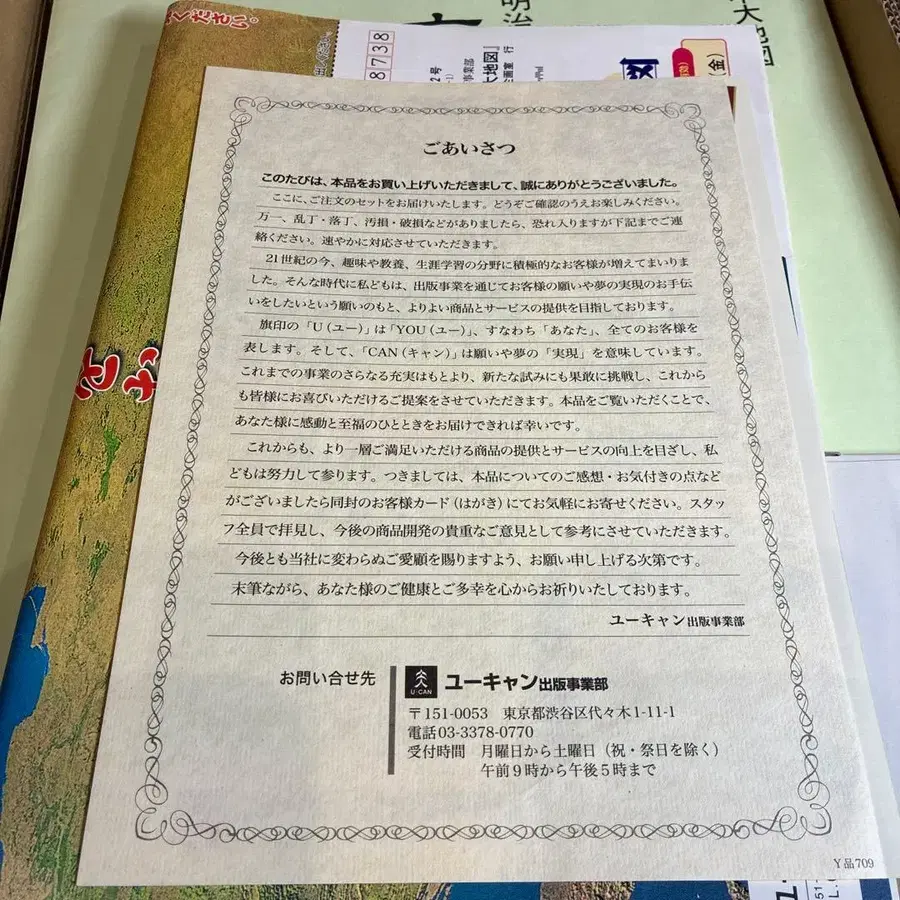 ください。
8738
2号
事業部
大地図』
企画室 行
図
(金)
明治
大地図
ごあいさつ
このたびは、本品をお買い上げいただきまして、誠にありがとうございました。
ここに、ご注文のセットをお届けいたします。どうぞご確認のうえお楽しみください。
万一、乱丁・落丁、汚損・破損などがありましたら、恐れ入りますが下記までご連
絡ください。速やかに対応させていただきます。
21世紀の今、趣味や教養、生涯学習の分野に積極的なお客様が増えてまいりま
した。そんな時代に私どもは、出版事業を通じてお客様の願いや夢の実現のお手伝
いをしたいという願いのもと、よりよい商品とサービスの提供を目指しております。
旗印の「U(ユー)」は「YOU(ユー)」、すなわち「あなた」、全てのお客様を
表します。そして、「CAN(キャン)」は願いや夢の「実現」を意味しています。
これまでの事業のさらなる充実はもとより、新たな試みにも果敢に挑戦し、これから
も皆様にお喜びいただけるご提案をさせていただきます。本品をご覧いただくことで、
あなた様に感動と至福のひとときをお届けできれば幸いです。
これからも、より一層ご満足いただける商品の提供とサービスの向上を目ざし、私
どもは努力して参ります。つきましては、本品についてのご感想・お気付きの点など
がございましたら同封のお客様カード(はがき)にてお気軽にお寄せください。スタッ
フ全員で拝見し、今後の商品開発の貴重なご意見として参考にさせていただきます。
今後とも当社に変わらぬご愛顧を賜りますよう、お願い申し上げる次第です。
末筆ながら、あなた様のご健康とご多幸を心からお祈りいたしております。
ユーキャン出版事業部
お問い合せ先
U-CAN
ユーキャン出版事業部
〒151-0053 東京都渋谷区代々木1-11-1
電話03-3378-0770
受付時間 月曜日から土曜日(祝・祭日を除く)
午前9時から午後5時まで
Y品709